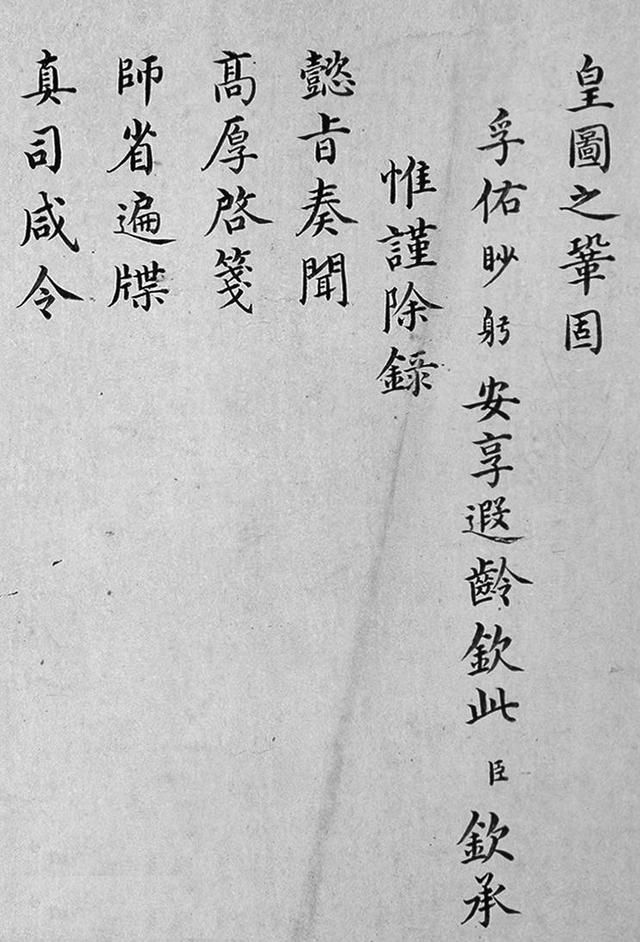 皇圖之鞏固
孚佑眇躬安享遐齡欽此臣欽承
惟謹除錄
懿旨奏聞
高厚啓箋
師省遍牒
真司咸令